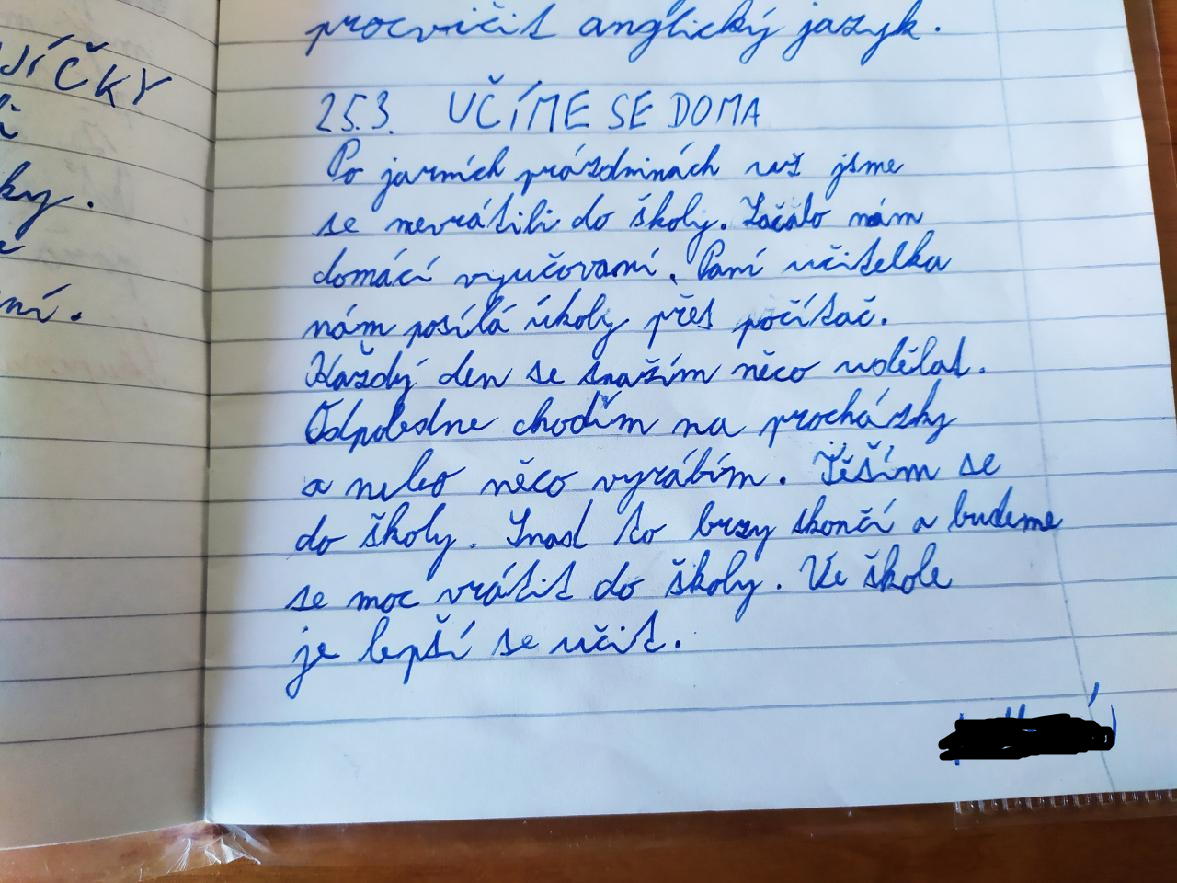 JÍČKY
ky.
ní.
procvičit anglický jazyk.
25.3. UČÍME SE DOMA
Po jarních prázdninách už jsme
se nevrátili do školy. Začalo nám
domácí vyučovaní. Paní učitelka
nám posílá úkoly přes počítač.
Každý den se snažím něco udělat.
Odpoledne chodím na procházky
a nebo něco vyrábím. Těším se
do školy. Snad to brzy skončí a budeme
se moc vrátit do školy. Ve škole
je lepší se učit.